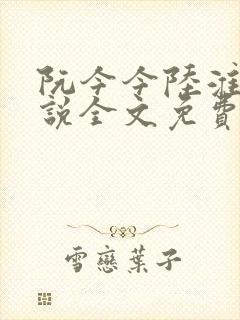 阮今今陸淮
説全文免費
雪戀葉子